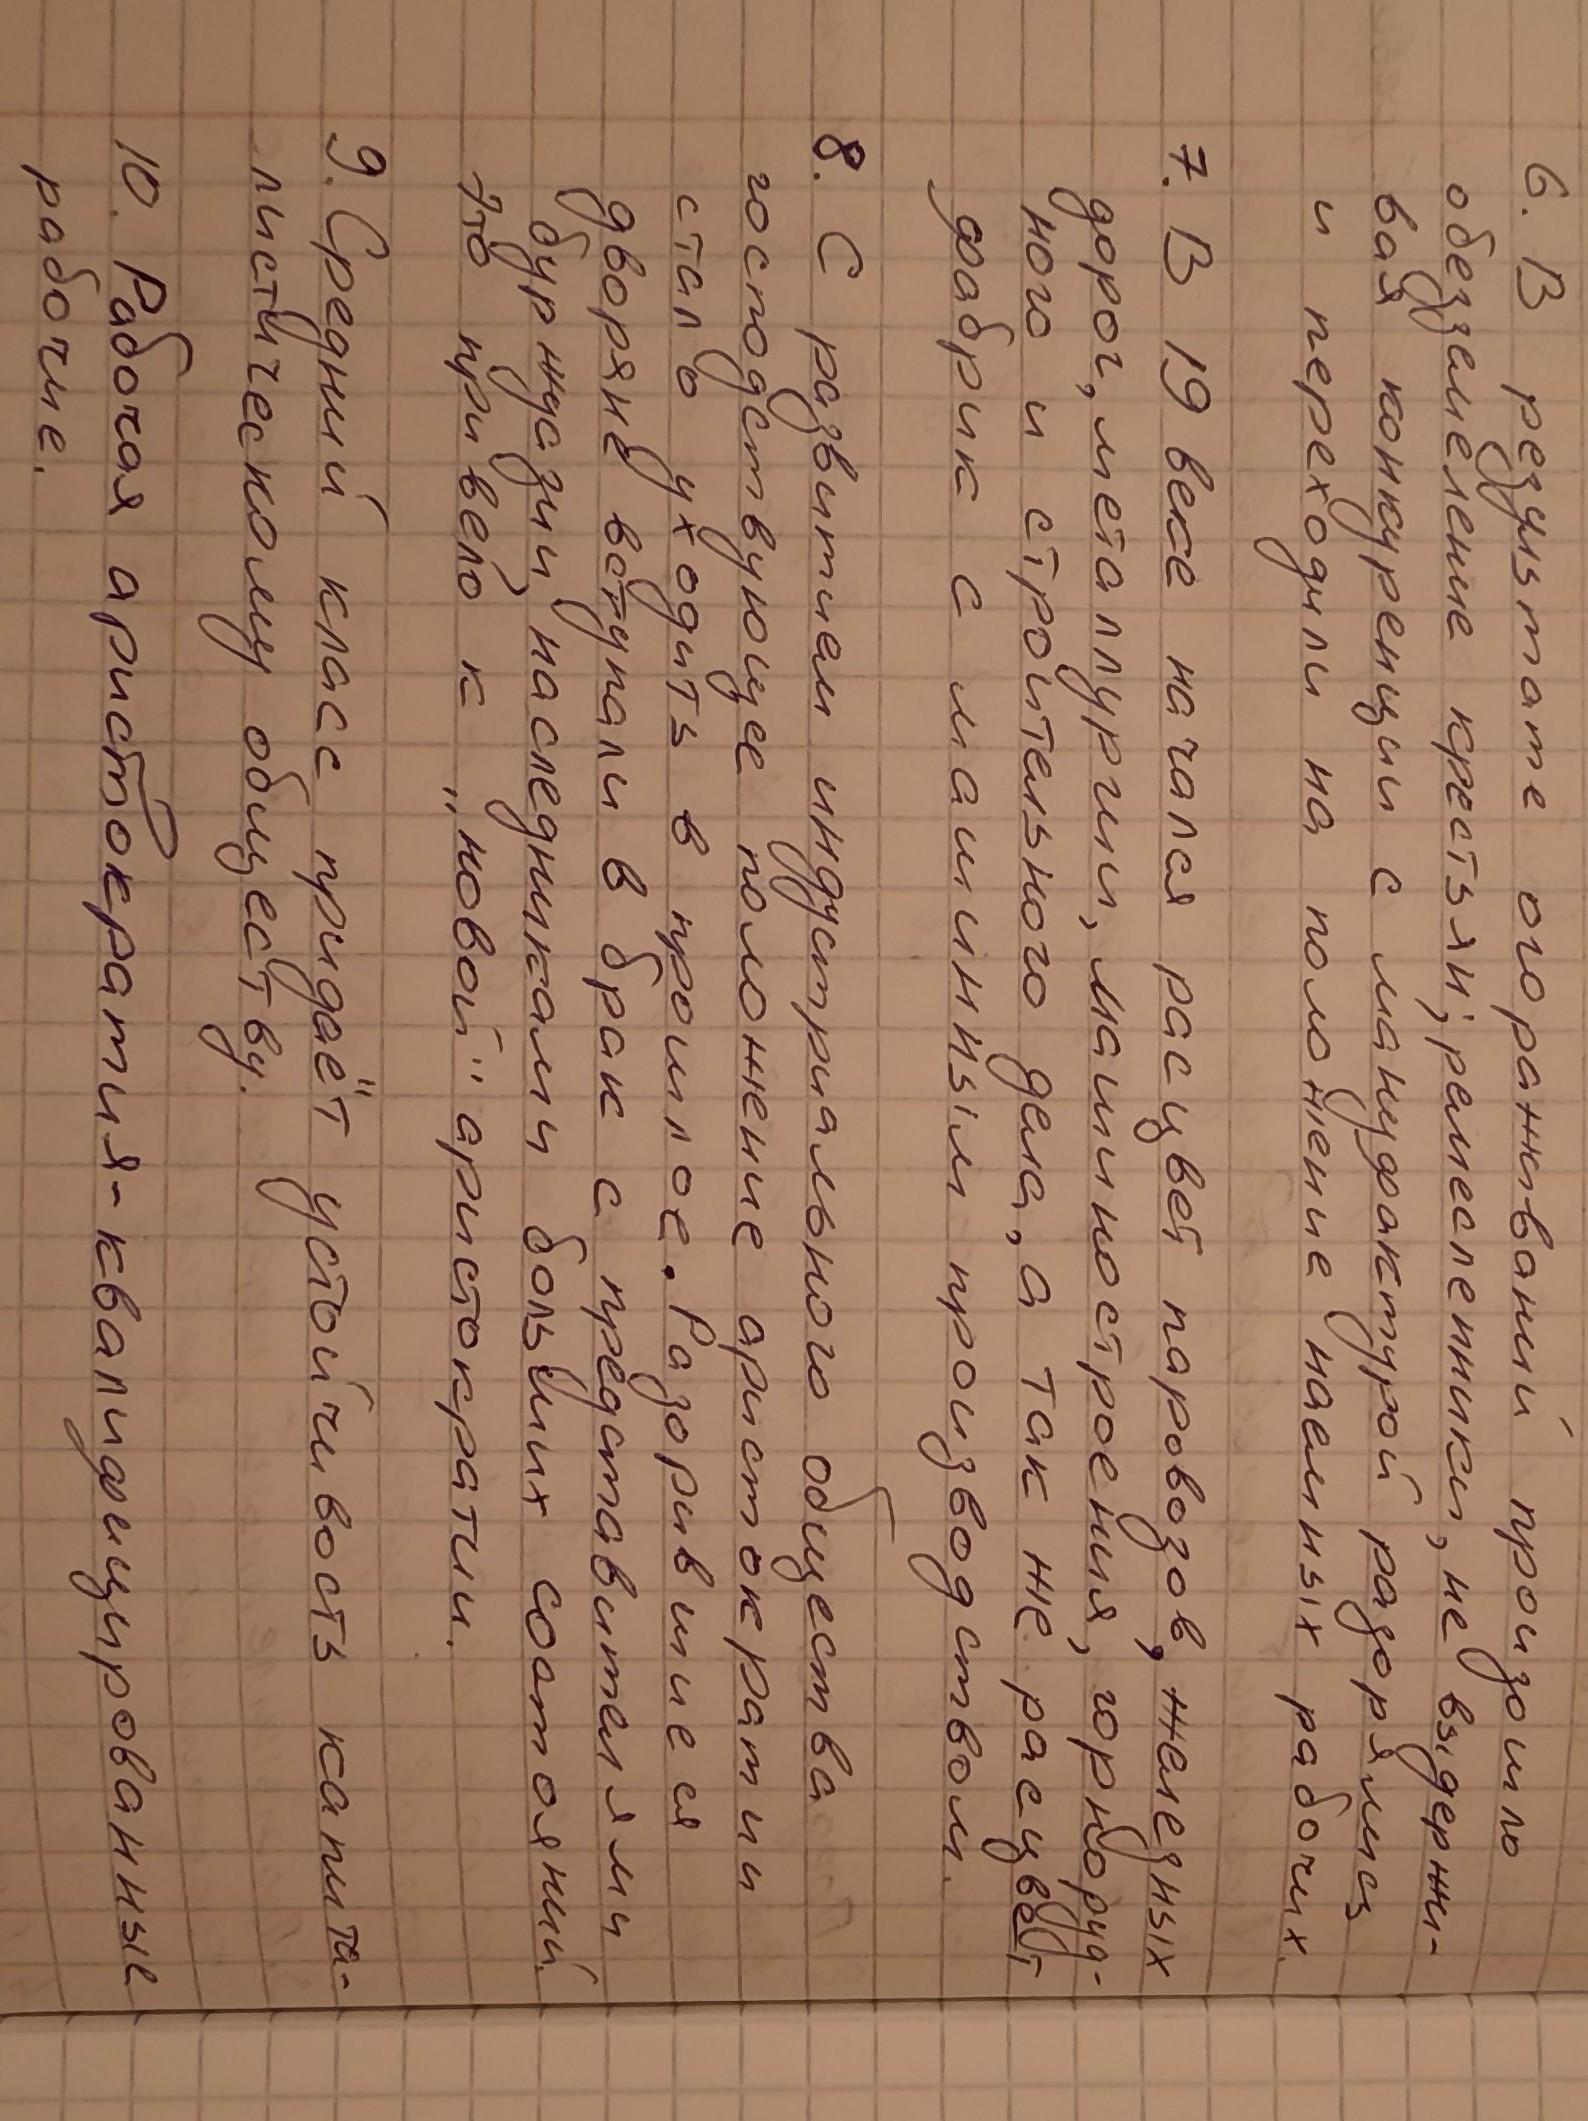 6. В результате огораживаний произошло
обезземеление крестьян; ремесленники, не выдержи-
вая конкуренции с мануфактурой разорялись
и переходили на положение наемных рабочих.
7. В 19 веке начался расцвет паровозов, железных
дорог, металлургии, машиностроения, горноруд-
ного и строительного дела, а так же расцвет
фабрик с машинным производством.
8. С развитием индустриального общества
господствующее положение аристократии
стало уходить в прошлое. Разорившиеся
дворяне вступали в брак с представителями
буржуазии, наследниками больших состояний.
Это привело к „новой" аристократии.
9. Средний класс придаёт устойчивость капита-
листическому обществу.
10. Рабочая аристократия-квалифицированные
рабочие.